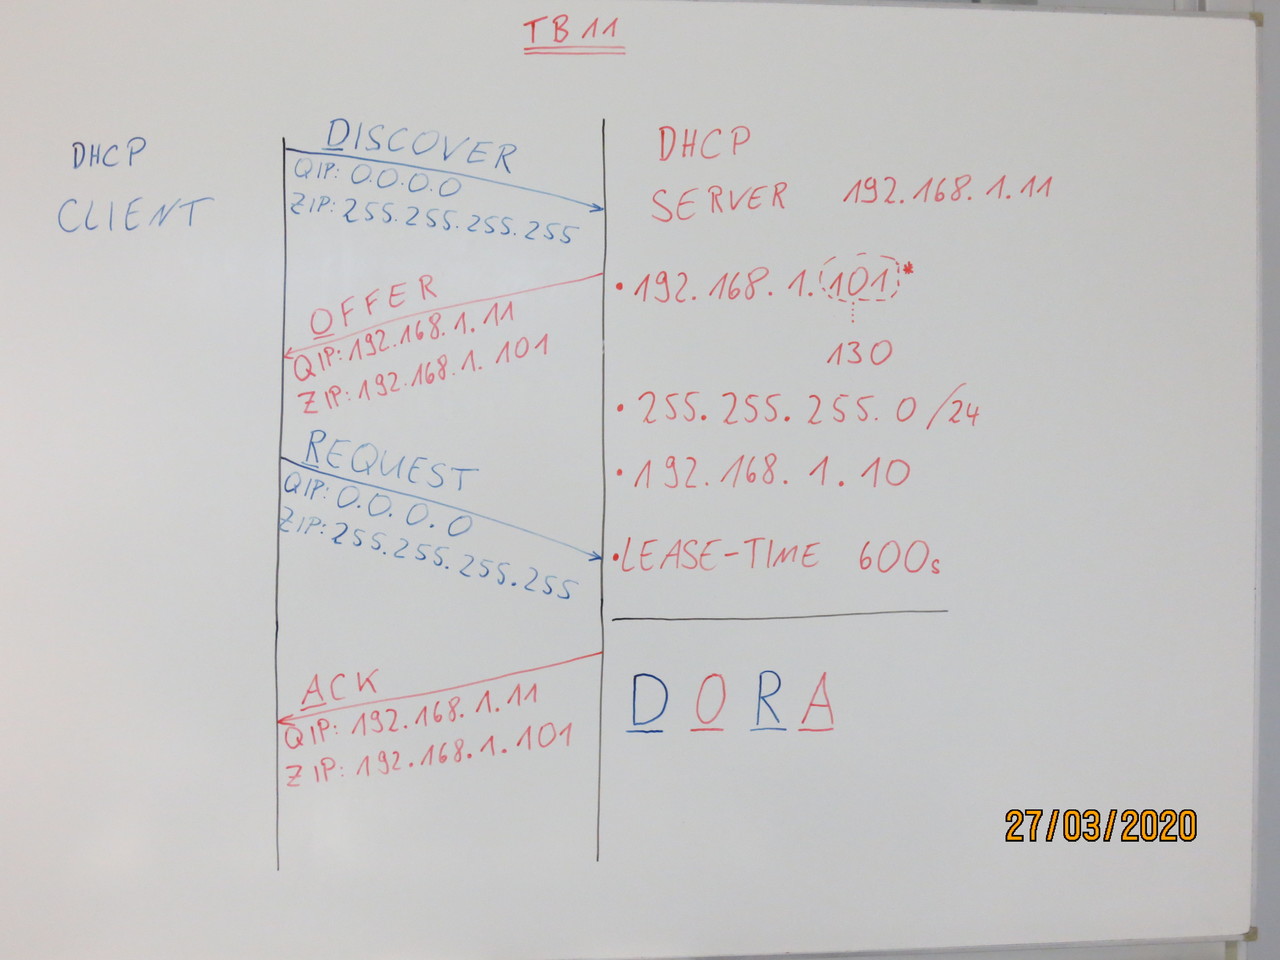 TB11
DHCP
CLIENT
DISCOVER
QIP: 0.0.0.0
ZIP: 255.255.255.255
OFFER
QIP: 192.168.1.11
ZIP: 192.168.1.101
REQUEST
QIP: 0.0.0.0
ZIP: 255.255.255.255
ACK
QIP: 192.168.1.11
ZIP: 192.168.1.101
DHCP
SERVER 192.168.1.11
• 192.168.1.101*
130
• 255.255.255.0 /24
• 192.168.1.10
• LEASE-TIME 600s
DORA
27/03/2020